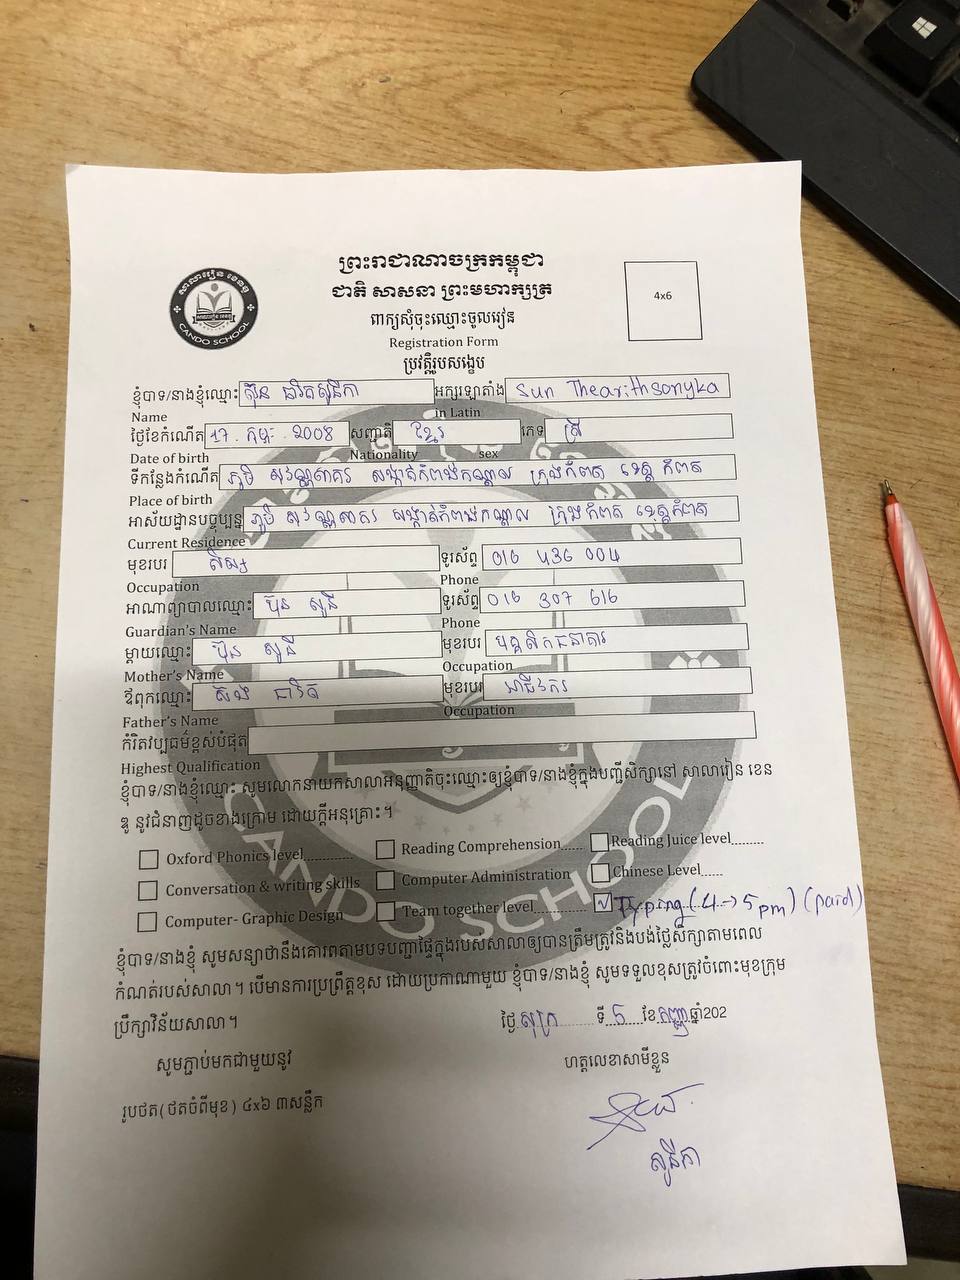 ព្រះរាជាណាចក្រកម្ពុជា
ជាតិ សាសនា ព្រះមហាក្សត្រ
ពាក្យសុំចុះឈ្មោះចូលរៀន
Registration Form
ប្រវត្តិរូបសង្ខេប
CANDO SCHOOL
4x6
ខ្ញុំបាទ/នាងខ្ញុំឈ្មោះ ស៊ុន ធារិតសូនីកា អក្សរឡាតាំង Sun Thearithsonyka
Name in Latin
ថ្ងៃខែកំណើត 17. កុម្ភៈ. 2008 សញ្ជាតិ ខ្មែរ ភេទ ស្រី
Date of birth Nationality sex
ទីកន្លែងកំណើត ភូមិ សុវណ្ណសាគរ សង្កាត់កំពង់កណ្ដាល ក្រុងកំពត ខេត្ត កំពត
Place of birth
អាស័យដ្ឋានបច្ចុប្បន្ន ភូមិ សុវណ្ណសាគរ សង្កាត់កំពង់កណ្ដាល ក្រុងកំពត ខេត្តកំពត
Current Residence
មុខរបរ សិស្ស ទូរស័ព្ទ 016 436 004
Occupation Phone
អាណាព្យាបាលឈ្មោះ ប៊ុន សូនី ទូរស័ព្ទ 016 307 616
Guardian's Name Phone
ម្ដាយឈ្មោះ ប៊ុន សូនី មុខរបរ បុគ្គលិកធនាគារ
Mother's Name Occupation
ឪពុកឈ្មោះ ធារិត មុខរបរ អាជីវករ
Father's Name Occupation
កំរិតវប្បធម៌ខ្ពស់បំផុត
Highest Qualification
ខ្ញុំបាទ/នាងខ្ញុំឈ្មោះ សូមលោកនាយកសាលាអនុញ្ញាតិចុះឈ្មោះឲ្យខ្ញុំបាទ/នាងខ្ញុំក្នុងបញ្ជីសិក្សានៅ សាលារៀន ខេន
ឌូ នូវជំនាញដូចខាងក្រោម ដោយក្ដីអនុគ្រោះ។
Oxford Phonics level............ Reading Comprehension...... Reading Juice level.........
Conversation & writing skills Computer Administration Chinese Level.....
Computer- Graphic Design Team together level............. Typing (4->5pm) (paid)
ខ្ញុំបាទ/នាងខ្ញុំ សូមសន្យាថានឹងគោរពតាមបទបញ្ជាផ្ទៃក្នុងរបស់សាលាឲ្យបានត្រឹមត្រូវនិងបង់ថ្លៃសិក្សាតាមពេល
កំណត់របស់សាលា។ បើមានការប្រព្រឹត្តខុស ដោយប្រកាណាមួយ ខ្ញុំបាទ/នាងខ្ញុំ សូមទទួលខុសត្រូវចំពោះមុខក្រុម
ប្រឹក្សាវិន័យសាលា។
ថ្ងៃ សុក្រ ទី 5 ខែ កញ្ញា ឆ្នាំ202
សូមភ្ជាប់មកជាមួយនូវ ហត្ថលេខាសាមីខ្លួន
រូបថត(ថតចំពីមុខ) ៤x៦ ៣សន្លឹក
សូនីកា